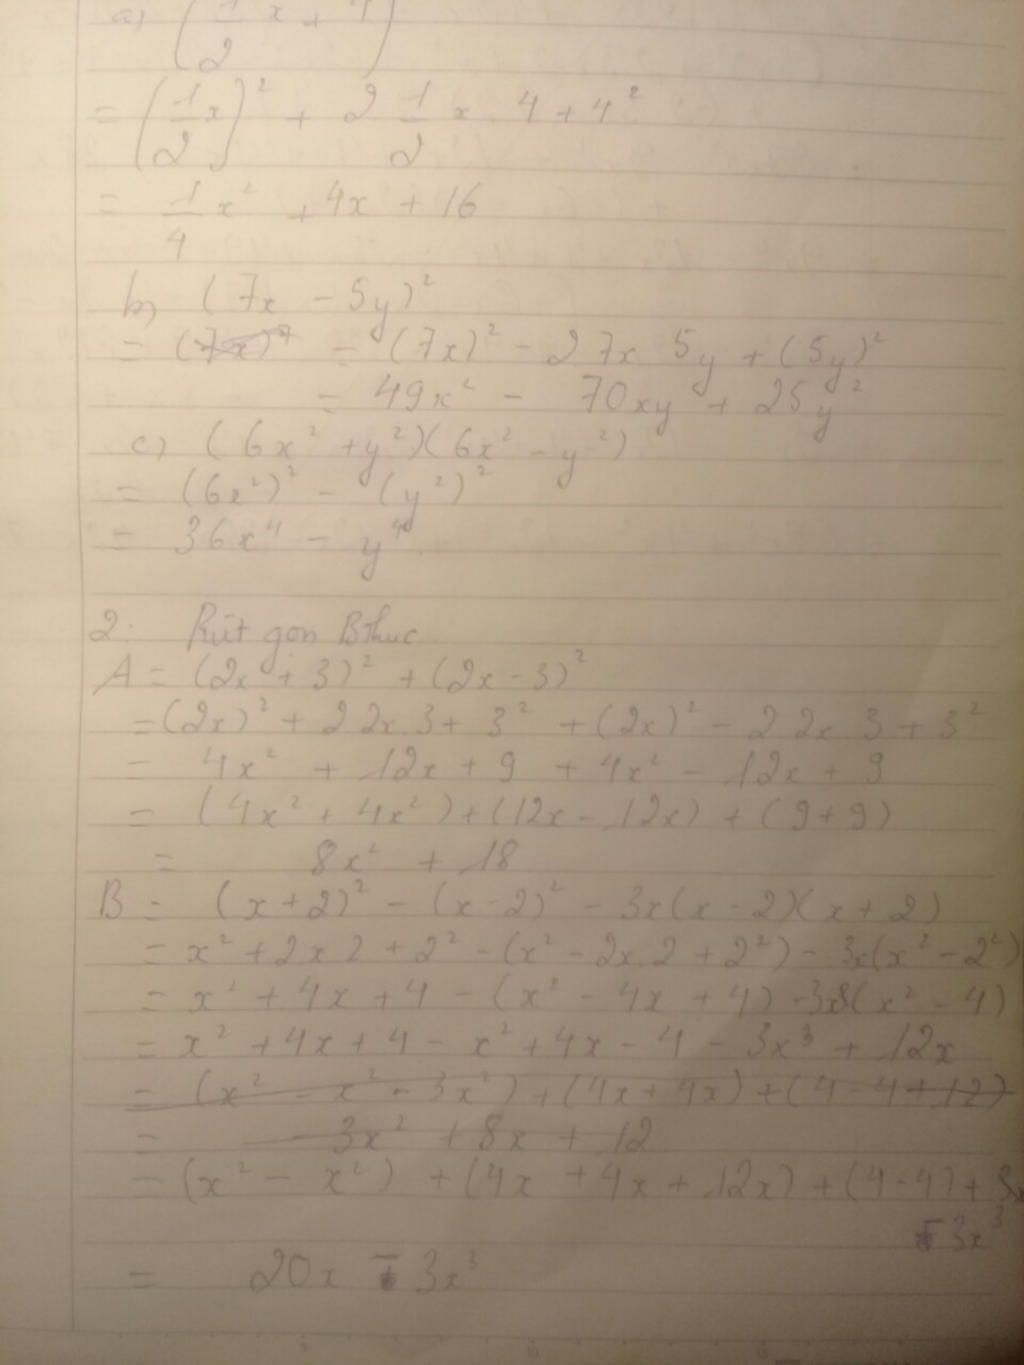 a) (1/2 x + 4)
= (1/2 x)² + 2 1/2 x . 4 + 4²
= 1/4 x² + 4x + 16
b) (7x - 5y)²
= (7x)² = (7x)² - 2 7x 5y + (5y)²
= 49x² - 70xy + 25y²
c) (6x² + y²)(6x² - y²)
= (6x²)² - (y²)²
= 36x⁴ - y⁴
2. Rút gọn Bthuc
A = (2x + 3)² + (2x - 3)²
= (2x)² + 2 2x 3 + 3² + (2x)² - 2 2x 3 + 3²
= 4x² + 12x + 9 + 4x² - 12x + 9
= (4x² + 4x²) + (12x - 12x) + (9 + 9)
= 8x² + 18
B = (x + 2)² - (x - 2)² - 3x(x - 2)(x + 2)
= x² + 2x 2 + 2² - (x² - 2x.2 + 2²) - 3x(x² - 2²)
= x² + 4x + 4 - (x² - 4x + 4) - 3x(x² - 4)
= x² + 4x + 4 - x² + 4x - 4 - 3x³ + 12x
= (x² - x² - 3x²) + (4x + 4x) + (4 - 4 + 12)
= - 3x² + 8x + 12
= (x² - x²) + (4x + 4x + 12x) + (4 - 4) + 3x
- 3x³
= 20x - 3x³